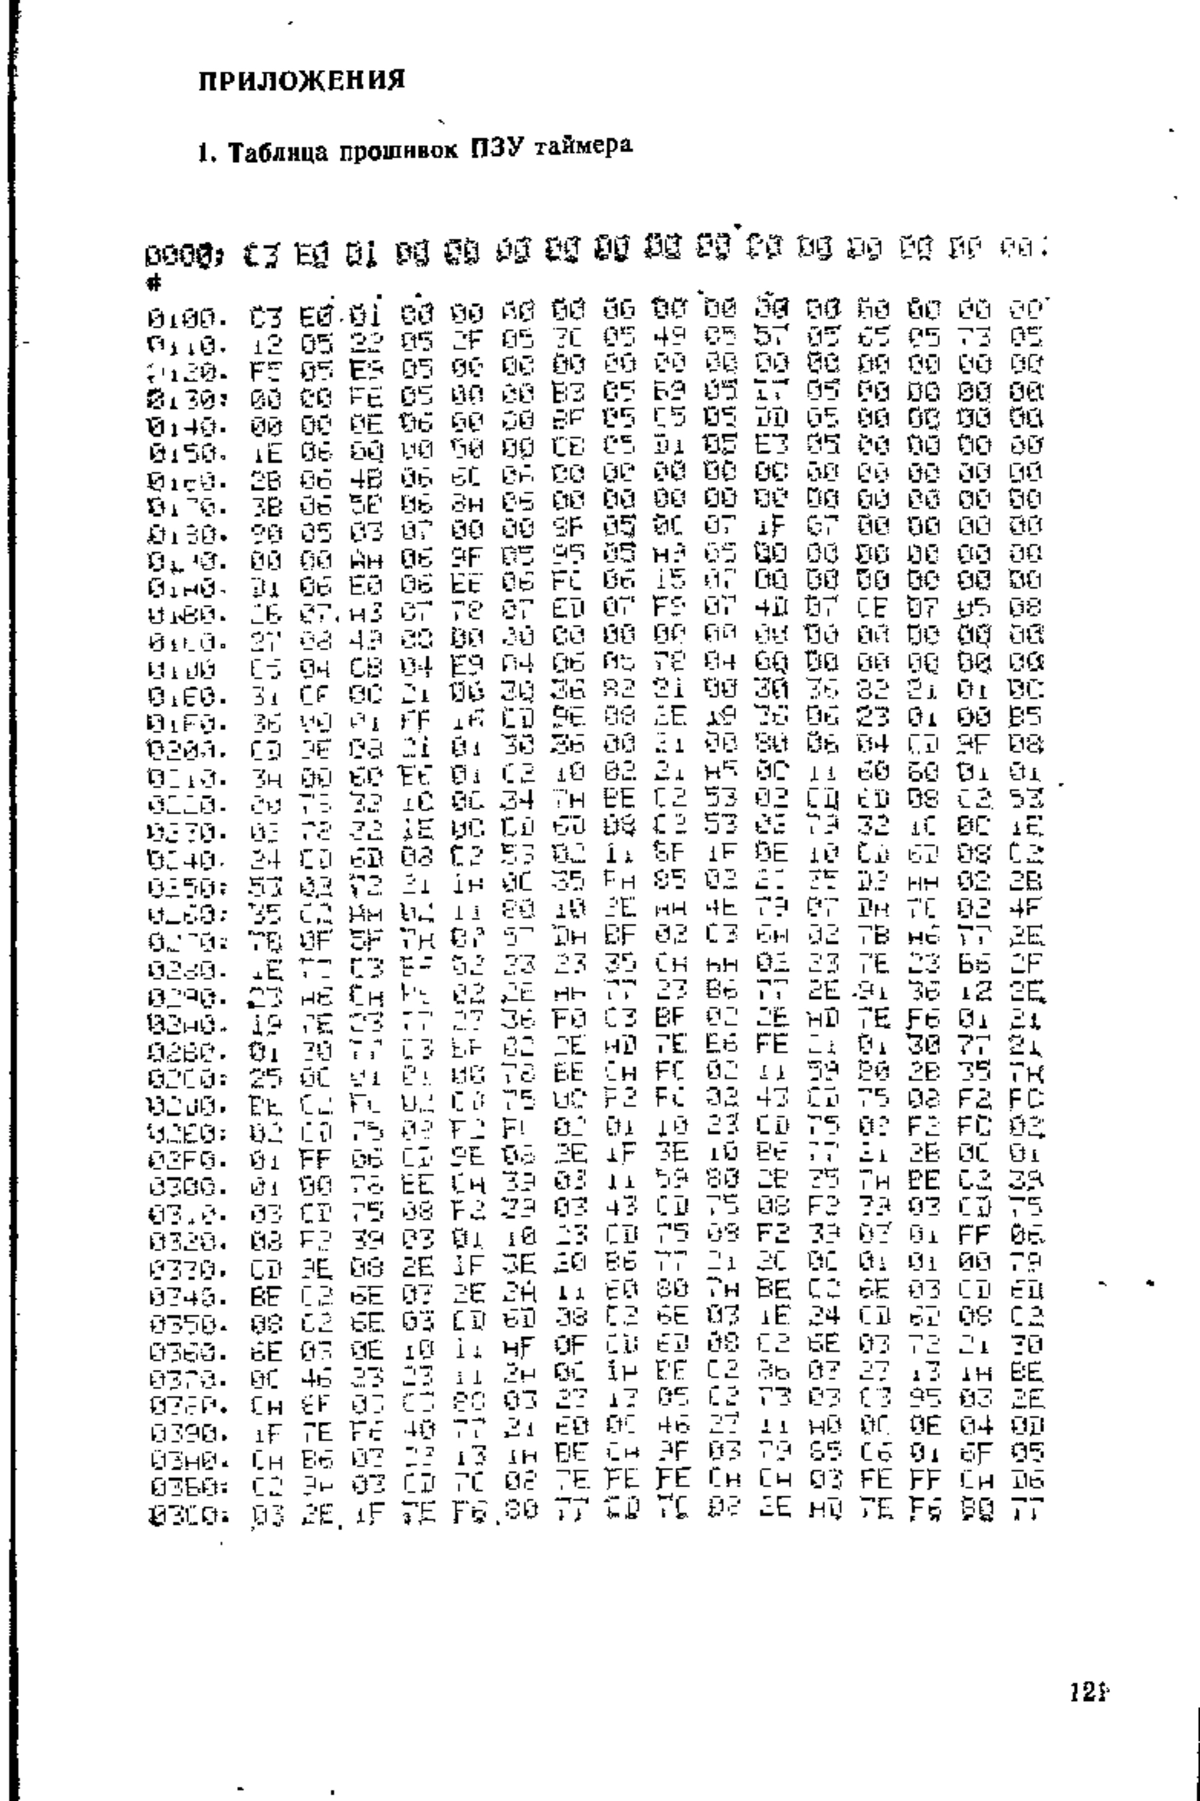 ПРИЛОЖЕНИЯ
1. Таблица прошивок ПЗУ таймера
0000: C3 E0 01 00 00 00 00 00 00 00 00 00 00 00 00 00
#
0100: C3 E0 01 00 00 00 00 00 00 00 00 00 00 00 00 00
0110: 12 05 22 05 2F 05 3C 05 49 05 57 05 65 05 73 05
0120: F5 05 E9 05 00 00 00 00 00 00 00 00 00 00 00 00
0130: 00 00 FE 05 00 00 B3 05 B9 05 05 00 00 00 00
0140: 00 00 0E 06 00 00 BF 05 C5 05 DD 05 00 00 00 00
0150: 1E 06 00 00 00 00 CB 05 D1 05 E3 05 00 00 00 00
0160: 2B 06 4B 06 6C 06 00 00 00 00 00 00 00 00 00 00
0170: 3B 06 5E 06 06 00 00 00 00 00 00 00 00 00 00
0180: 90 05 03 07 00 00 9F 05 0C 07 1F 07 00 00 00 00
0190: 00 00 AA 06 9F 05 95 05 A3 05 00 00 00 00 00 00
01A0: D1 06 E0 06 EE 06 FC 06 15 07 00 00 00 00 00 00
01B0: 07 A3 07 78 07 ED 07 F9 07 4D 07 CE 07 08
01C0: 27 08 49 00 00 00 00 00 00 00 00 00 00 00 00
01D0 C5 04 CB 04 E9 04 06 05 78 04 00 00 00 00 00 00
01E0: 31 CF 0C 21 00 30 36 82 21 00 30 36 82 21 01 0C
01F0: 36 00 01 FF 16 CD 9E 08 2E 19 36 06 23 01 00 B5
0200: CD 9E 08 21 01 30 36 00 21 00 80 06 04 CD 9F 08
0210: 3A 00 60 E6 01 C2 10 02 21 A5 0C 11 60 60 01 01
0220: 32 1C 0C 34 7A BE C2 53 02 CD 6D 08 C2 53
0230: 02 78 32 1E 0C CD 6D 08 C2 53 02 79 32 1C 0C 1E
0240: 24 CD 6D 08 C2 53 02 11 5F 1F 0E 10 CD 6D 08 C2
0250: 53 02 72 21 1A 0C 35 FA 85 02 35 C2 AA 02 2B
0260: 35 C2 AA 02 11 80 10 2E AA 4E 79 07 DA 7C 02 4F
0270: 7B 0F 5F 7A 07 57 DA BF 02 C3 6A 02 7B A6 77 2E
0280: 1E 77 C3 BF 02 23 23 35 CA 02 23 7E 23 B6 2F
0290: 23 A6 CA 02 2E 77 23 B6 77 2E 91 36 12 2E
02A0: 19 7E 23 77 23 36 F0 C3 BF 02 2E AD 7E F6 01 21
02B0: 01 30 77 C3 BF 02 2E AD 7E E6 FE 21 01 30 77 21
02C0: 25 0C 01 01 00 78 BE CA FC 02 11 59 80 2B 35 7A
02D0: BE C2 FC 02 CD 75 08 F2 FC 02 43 CD 75 08 F2 FC
02E0: 02 CD 75 08 F2 FC 02 01 10 23 CD 75 08 F2 FC 02
02F0: 01 FF 06 CD 9E 08 2E 1F 3E 10 B6 77 21 2B 0C 01
0300: 01 00 78 BE CA 39 03 11 59 80 2B 35 7A BE C2 39
0310: 03 CD 75 08 F2 39 03 43 CD 75 08 F2 39 03 CD 75
0320: 08 F2 39 03 01 10 23 CD 75 08 F2 39 03 01 FF 06
0330: CD 9E 08 2E 1F 3E 20 B6 77 21 2C 0C 01 01 00 79
0340: BE C2 6E 03 2E 2A 11 60 80 7A BE C2 6E 03 CD 6D
0350: 08 C2 6E 03 CD 6D 08 C2 6E 03 1E 24 CD 6D 08 C2
0360: 6E 03 0E 10 11 AF 0F CD 6D 08 C2 6E 03 72 21 30
0370: 0C 46 23 23 11 2A 0C 1A BE C2 86 03 23 13 1A BE
0380: CA 8F 03 C3 80 03 23 13 05 C2 73 03 C3 95 03 2E
0390: 1F 7E F6 40 77 21 E0 0C 46 23 11 A0 0C 0E 04 0D
03A0: CA B6 03 23 13 1A BE CA 9F 03 79 85 C6 01 6F 05
03B0: C2 03 CD 7C 08 7E FE FE CA CA 03 FE FF CA D6
03C0: 03 2E 1F 7E F6 80 77 CD 7C 08 2E AD 7E F6 80 77
121